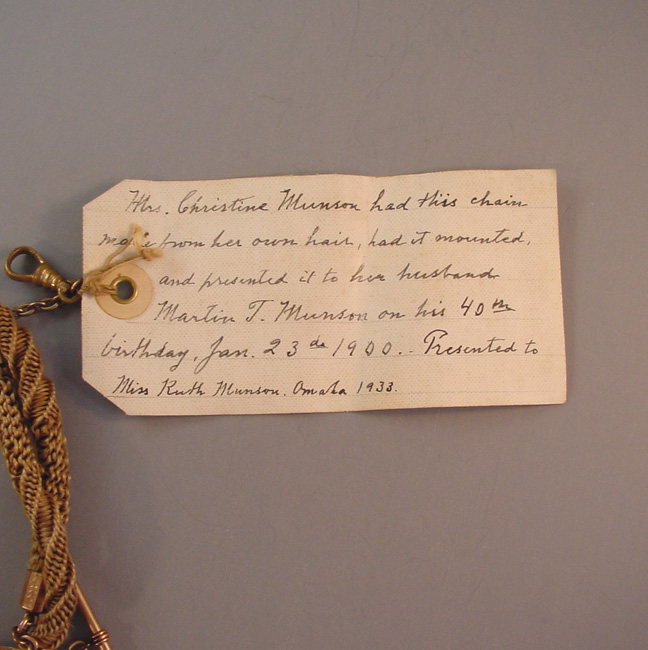 Mrs. Christine Munson had this chain
made from her own hair, had it mounted,
and presented it to her husband
Martin T. Munson on his 40th
birthday, Jan. 23de 1900.. Presented to
Miss Ruth Munson. Omaha 1933.